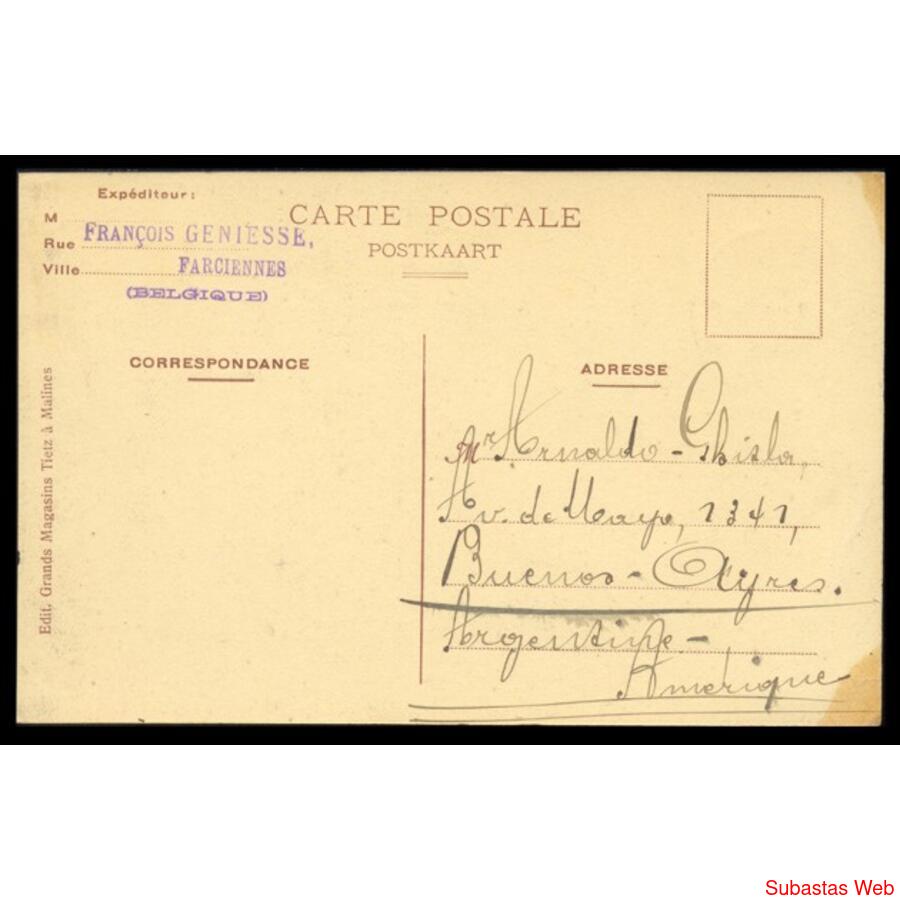 Expéditeur :
M
Rue FRANÇOIS GENIESSE,
Ville FARCIENNES
(BELGIQUE)
CARTE POSTALE
POSTKAART
CORRESPONDANCE
ADRESSE
Mr Arnaldo - Ghisla,
Av. de Mayo, 1341,
Buenos - Ayres.
Argentine -
Amérique
Edit. Grands Magasins Tietz à Malines
Subastas Web